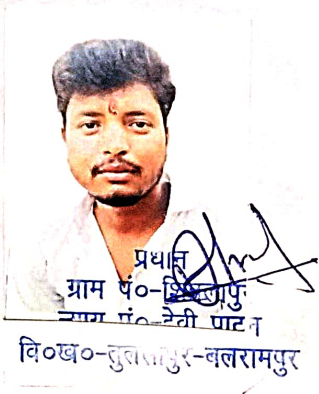 प्रधान
ग्राम पं०-
न्याय पं०-देवी पाटन
वि०ख०-तुलसीपुर-बलरामपुर